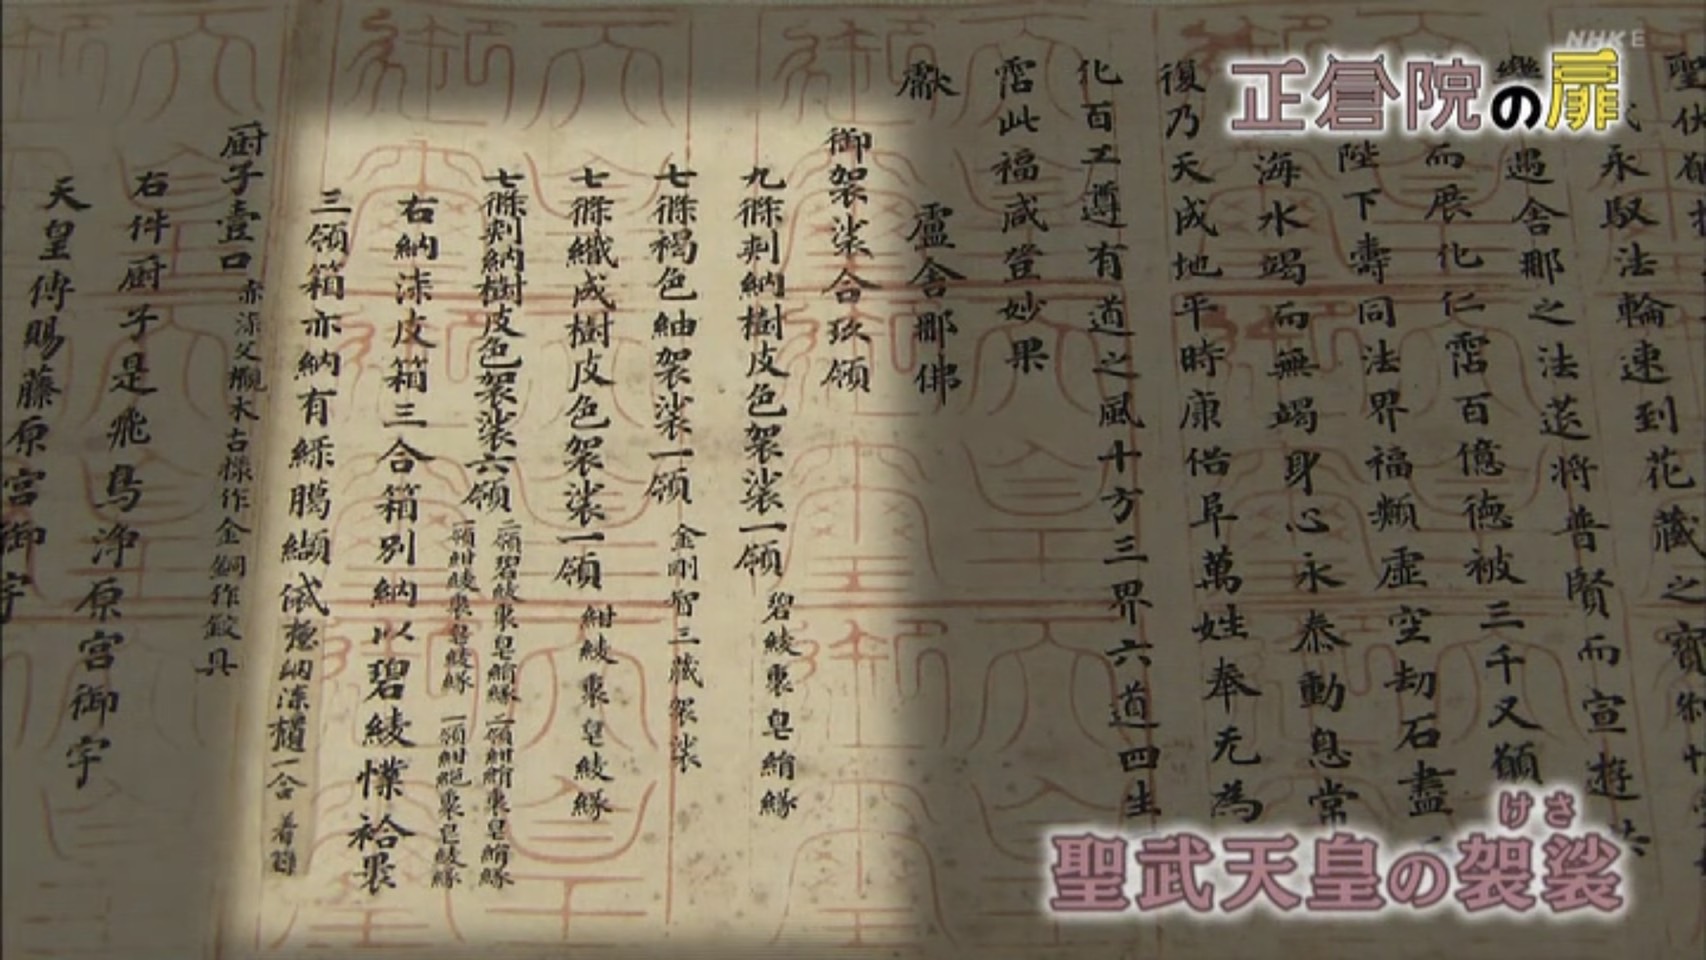 NHK E
正倉院の扉
永馭法輪速到花藏之寶
遇舍那之法莚将普賢而宣遊
而展化仁霑百億德被三千又願
陛下壽同法界福類虚空劫石盡
海水竭而無竭身心永泰動息常
復乃天成地平時康俗阜萬姓奉无為
化百工遵有道之風十方三界六道四生
霑此福咸登妙果
獻　盧舍那佛
御袈裟合玖領
九條刺納樹皮色袈裟一領 碧綾裏皂絁緣
七條褐色紬袈裟一領 金剛智三藏袈裟
七條織成樹皮色袈裟一領 紺綾裏皂綾緣
七條刺納樹皮色袈裟六領
右納漆皮箱三合箱別納以碧綾㡪袷褁
三領箱亦納有綠臈纈
厨子壹口 赤漆文欟木古樣作金銅作鉸具
右件厨子是飛鳥浄原宮御宇
天皇傳賜藤原宮御宇
けさ
聖武天皇の袈裟